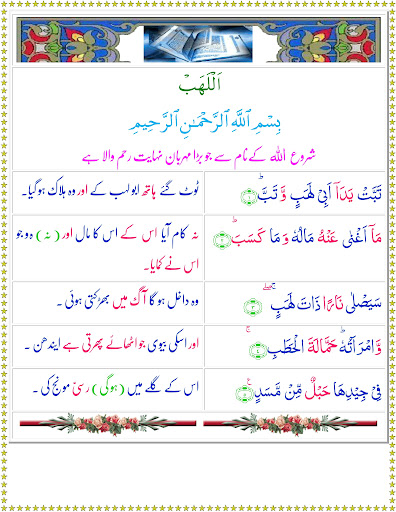 اَللَّهَبْ
بِسْمِ اللَّهِ الرَّحْمَٰنِ الرَّحِيمِ
شروع اللہ کے نام سے جو بڑا مہربان نہایت رحم والا ہے
تَبَّتْ يَدَاۤ اَبِىْ لَهَبٍ وَّتَبَّ ؕ‏ ﴿۱﴾
ٹوٹ گئے ہاتھ ابو لہب کے اور وہ ہلاک ہو گیا۔
مَاۤ اَغْنٰى عَنْهُ مَالُهٗ وَمَا كَسَبَؕ‏ ﴿۲﴾
نہ کام آیا اس کے اس کا مال اور ( نہ ) وہ جو
اس نے کمایا۔
سَيَصْلٰى نَارًا ذَاتَ لَهَبٍ ۖۚ ﴿۳﴾
وہ داخل ہو گا آگ میں بھڑکتی ہوئی ۔
وَّامْرَاَتُهٗ ؕ حَمَّالَةَ الْحَطَبِ‌ۚ‏ ﴿۴﴾
اور اسکی بیوی جو اٹھائے پھرتی ہے ایندھن ۔
فِىْ جِيْدِهَا حَبْلٌ مِّنْ مَّسَدٍ ﴿۵﴾
اس کے گلے میں (ہو گی) رسی مونج کی ۔